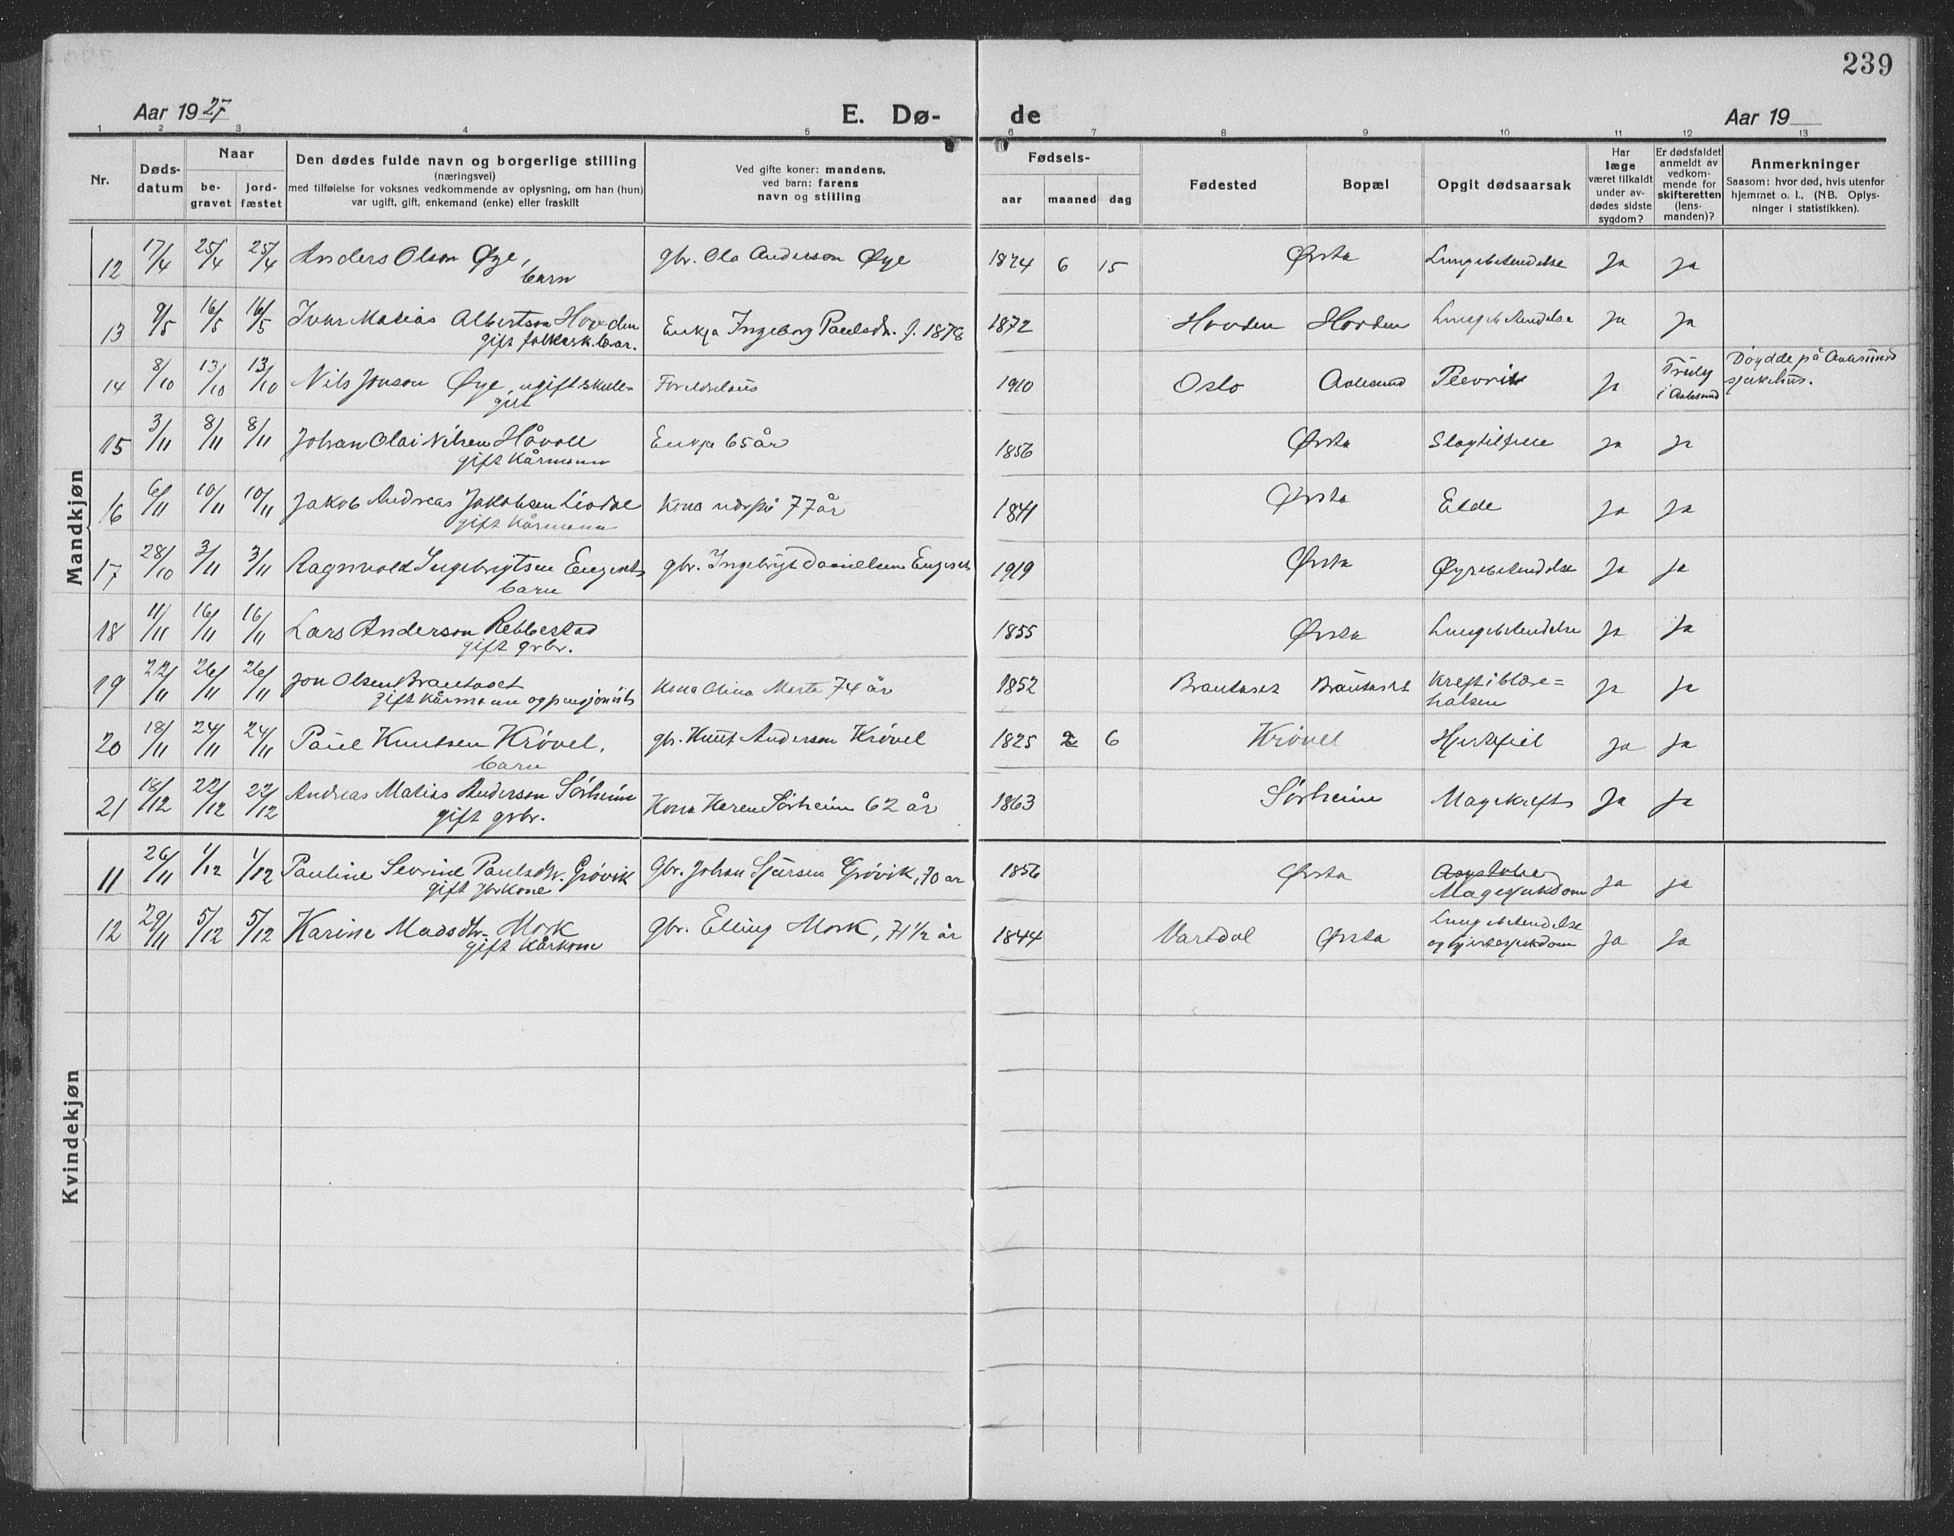 239
Aar 1925
E. Dø-
de
Aar 19
1 2 3 4 5 6 7 8 9 10 11 12 13
Nr.
Døds-
datum
Naar
be-
gravet
jord-
fæstet
Den dødes fulde navn og borgerlige stilling
(næringsvei)
med tilføielse for voksnes vedkommende av oplysning, om han (hun)
var ugift, gift, enkemand (enke) eller fraskilt
Ved gifte koner: mandens,
ved barn: farens
navn og stilling
Fødsels-
aar maaned dag
Fødested
Bopæl
Opgit dødsaarsak
Har
læge
været tilkaldt
under av-
dødes sidste
sygdom?
Er dødsfaldet
anmeldt av
vedkom-
mende for
skifteretten
(lens-
manden)?
Anmerkninger
Saasom: hvor død, hvis utenfor
hjemmet o. l., (NB. Oplys-
ninger i statistikken).
Mandkjøn
12 17/4 25/4 25/4 Anders Olson Øye, gbr. Ola Anderson Øye 1924 6 15 Ørsta Lungebetendelse Ja Ja
barn
13 9/5 16/5 16/5 Ivar Matias Albertson Hovden Enkja Ingeborg Paulsdr. f. 1878 1872 Hovden Hovden Lungebetendelse Ja Ja
gift
14 8/10 13/10 13/10 Nils Jonson Øye, ugift skule- Foreldrelaus 1910 Oslo Aalesund Ja
gut
i Aalesund
Døydde på Aalesund
sjukehus.
15 3/11 8/11 8/11 Johan Olai Nilsen Håvoll Enkja 65 år 1856 Ørsta Slagtilfelle Ja Ja
gift kårmann
16 6/11 10/11 10/11 Jakob Andreas Jakobsen Lisdal Kona 77 år 1841 Ørsta Elde Ja Ja
gift kårmann
17 28/10 3/11 3/11 Ragnvald Ingebrigtsen Engeset gbr. Ingebrigt Danielsen Engeset 1919 Ørsta Øyrebetendelse Ja Ja
barn
18 11/11 16/11 16/11 Lars Anderson Rebbestad 1855 Ørsta Lungebetendelse Ja Ja
gift grbr.
19 22/11 26/11 26/11 Jon Olsen Brautaset Kona Olina Marta 74 år 1852 Brautaset Brautaset Kreft i blære=
gift kårmann og pensjonist halsen Ja Ja
20 18/11 24/11 24/11 Paul Knutsen Krøvel, gbr. Knut Anderson Krøvel 1825 2 6 Krøvel Hjertefeil Ja Ja
barn
21 18/12 22/12 22/12 Andreas Matias Anderson Sørheim Kona Karen Sørheim 62 år 1863 Sørheim Magekreft Ja Ja
gift grbr.
Kvindekjøn
11 26/11 1/12 1/12 Pauline Sevrine Paulsdr. Grøvik Gbr. Johan Sjursen Grøvik, 70 år 1856 Ørsta
gift Magesjukdom Ja Ja
12 29/11 5/12 5/12 Karine Madsdtr. Mork gbr. Elling Mork, 71 1/2 år 1844 Vartdal Ørsta Lungebetendelse
gift kårkone og hjertesjukdom Ja Ja